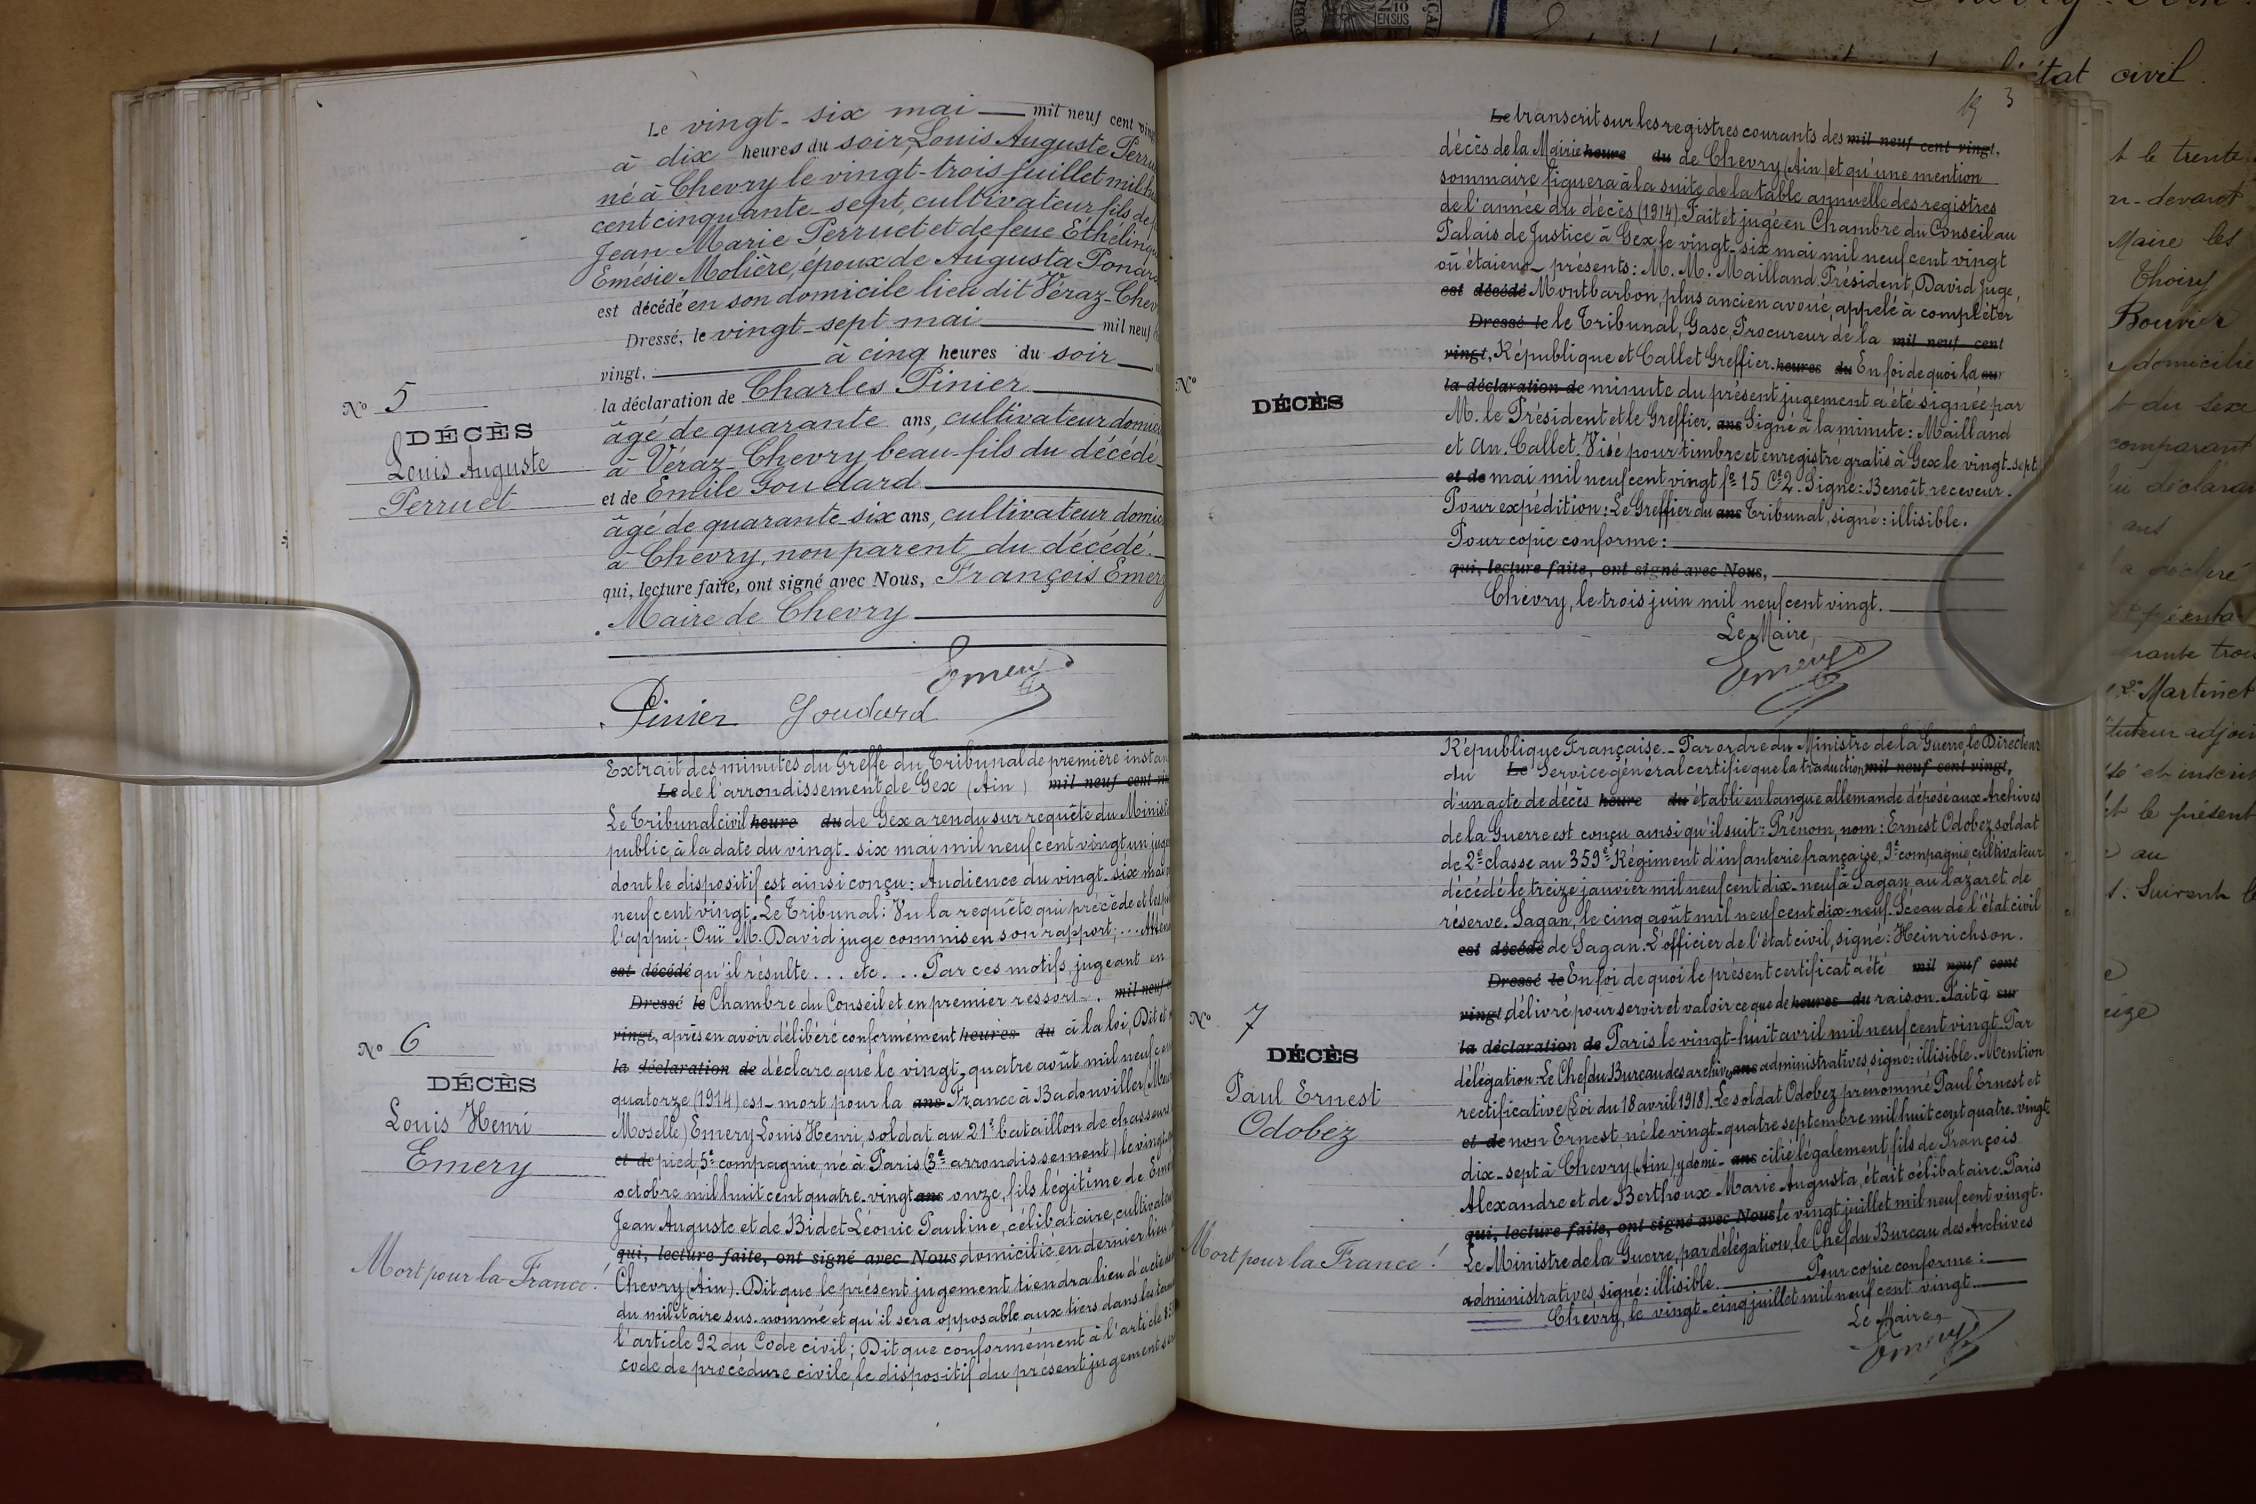 Le vingt-six mai — mil neuf cent
à dix heures du soir, Louis Auguste
né à Chevry le vingt-trois juillet mil
cent cinquante-sept, cultivateur, fils de
Jean Marie Perruet et de feue
Emésie Molière, époux de Augusta
est décédé en son domicile lieu dit Véraz-
Dressé, le vingt-sept mai — mil neuf
vingt. — à cinq heures du soir —
la déclaration de Charles Pinier
âgé de quarante ans, cultivateur
à Véraz-Chevry, beau-fils du décédé
et de Emile Goudard
âgé de quarante-six ans, cultivateur
à Chevry, non parent du décédé.
qui, lecture faite, ont signé avec Nous, François Emery
Maire de Chevry
N° 5
DÉCÈS
Louis Auguste
Perruet
Emery
Pinier Goudard
Extrait des minutes du Greffe du Tribunal de première
Le de l'arrondissement de Gex (Ain) mil neuf cent
Le Tribunal civil heure du de Gex a rendu sur requête du
public, à la date du vingt-six mai mil neuf cent vingt un
dont le dispositif est ainsi conçu: Audience du vingt-six mai
neuf cent vingt. Le Tribunal: Vu la requête qui précède et
l'appui; Ouï M. David juge commis en son rapport; ...
est décédé qu'il résulte... etc... Par ces motifs, jugeant en
Dressé le Chambre du Conseil et en premier ressort. mil neuf
vingt, après en avoir délibéré conformément heures du à la loi, Dit et
la déclaration de déclare que le vingt-quatre août mil neuf
quatorze (1914) est mort pour la ans France à Badonviller
Moselle) Emery Louis Henri, soldat au 21e bataillon de chasseurs
et de pied, 5e compagnie, né à Paris (3e arrondissement) le
octobre mil huit cent quatre-vingt ans onze, fils légitime de
Jean Auguste et de Bidet Léonie Pauline, célibataire,
qui, lecture faite, ont signé avec Nous, domicilié en dernier lieu
Chevry (Ain). Dit que le présent jugement tiendra lieu d'acte
du militaire sus-nommé et qu'il sera opposable aux tiers dans les
l'article 92 du Code civil; Dit que conformément à l'article
code de procédure civile, le dispositif du présent jugement
N° 6
DÉCÈS
Louis Henri
Emery
Mort pour la France!
19 3
Le transcrit sur les registres courants des mil neuf cent vingt,
décès de la Mairie heure du de Chevry (Ain) et qu'une mention
sommaire figurera à la suite de la table annuelle des registres
de l'année du décès (1914). Fait et jugé en Chambre du Conseil au
Palais de Justice à Gex le vingt-six mai mil neuf cent vingt
où étaient présents: M. M. Mailland Président, David Juge,
est décédé Montbarbon, plus ancien avoué, appelé à compléter
Dressé le le Tribunal, Gasc, Procureur de la mil neuf cent
vingt, République et Callet Greffier. heures du En foi de quoi la sur
la déclaration de minute du présent jugement a été signée par
M. le Président et le Greffier. ans Signé à la minute: Mailland
et An. Callet. Visé pour timbre et enregistré gratis à Gex le vingt-sept
et de mai mil neuf cent vingt fo 15 Ce 2. Signé: Benoît receveur.
Pour expédition: Le Greffier du ans Tribunal, signé: illisible.
Pour copie conforme:
qui, lecture faite, ont signé avec Nous,
Chevry, le trois juin mil neuf cent vingt.
Le Maire,
Emery
N°
DÉCÈS
République Française.- Par ordre du Ministre de la Guerre, le Directeur
du Le Service général certifie que la traduction mil neuf cent vingt,
d'un acte de décès heure du établi en langue allemande déposé aux Archives
de la Guerre est conçu ainsi qu'il suit: Prénom, nom: Ernest Odobez, soldat
de 2e classe au 359e Régiment d'infanterie française, 9e compagnie, cultivateur
décédé le treize janvier mil neuf cent dix-neuf à Sagan, au lazaret de
réserve. Sagan, le cinq août mil neuf cent dix-neuf. Sceau de l'état civil
est décédé de Sagan. L'officier de l'état civil, signé: Heinrichson.
Dressé le En foi de quoi le présent certificat a été mil neuf cent
vingt, délivré pour servir et valoir ce que de heures du raison. Fait à sur
la déclaration de Paris le vingt-huit avril mil neuf cent vingt. Par
délégation: Le Chef du Bureau des archives ans administratives, signé: illisible. Mention
rectificative (Loi du 18 avril 1918). Le soldat Odobez prénommé Paul Ernest et
et de non Ernest, né le vingt-quatre septembre mil huit cent quatre-vingt
dix-sept à Chevry (Ain) y domi- ans cilié légalement, fils de François
Alexandre et de Berthoux Marie Augusta, était célibataire. Paris
qui, lecture faite, ont signé avec Nous le vingt juillet mil neuf cent vingt.
Le Ministre de la Guerre, par délégation, le Chef du Bureau des Archives
administratives, signé: illisible. Pour copie conforme:
Chevry, le vingt-cinq juillet mil neuf cent vingt
Le Maire,
Emery
N° 7
DÉCÈS
Paul Ernest
Odobez
Mort pour la France!
état civil.
devant
Maire les
Thoiry
Bouvier
domicilié
du sexe
comparant
ans
Martinet
et inscrit
le présent
au
Suivent